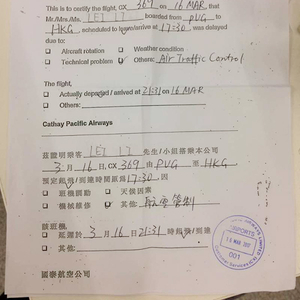 This is to certify the flight, CX 369 on 16 MAR that
Mr./Mrs./Ms. LEI LI boarded from PVG to
HKG, scheduled to leave/arrive at 17:30, was delayed
due to:
☐ Aircraft rotation ☐ Weather condition
☐ Technical problem ☑ Others: Air Traffic Control
The flight,
☐ Actually departed / arrived at 21:31 on 16 MAR
☐ Others:
Cathay Pacific Airways
茲證明乘客 LEI LI 先生/小姐搭乘本公司
3 月 16 日, CX 369 由 PVG 至 HKG
預定起飛/到達時間原爲 17:30, 因
☐ 班機調動 ☐ 天候因素
☐ 機械維修 ☑ 其他: 航空管制
該班機,
☐ 延遲於 3 月 16 日 21:31 時起飛/到達
☐ 其他:
國泰航空公司
001